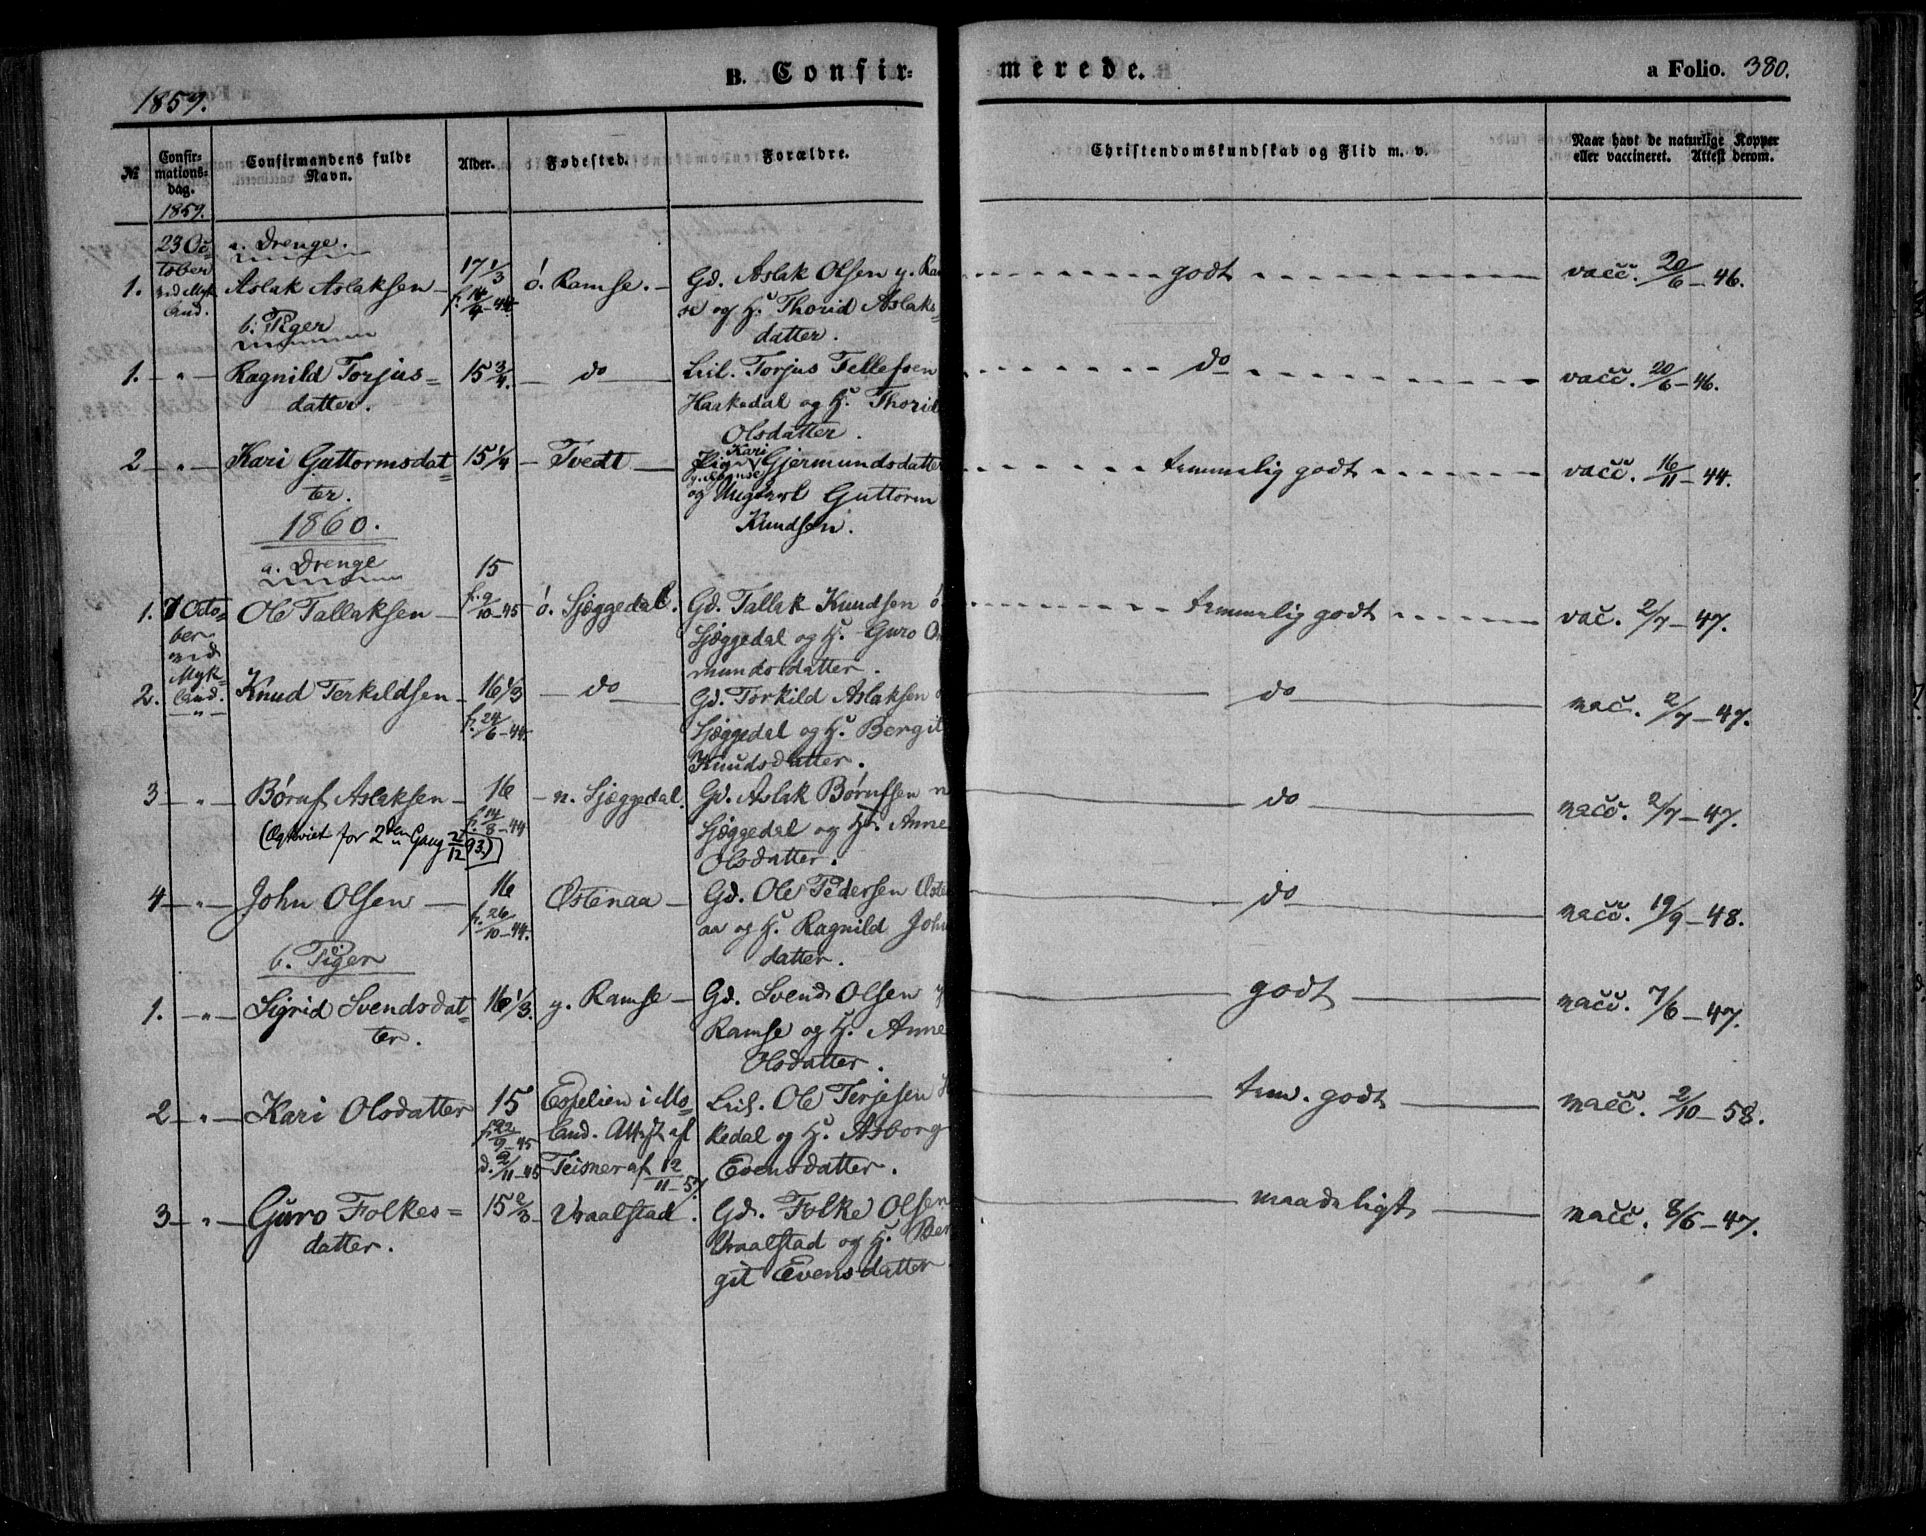 B. Confirmerede.
a Folio. 380.
1859.
№
Confirmationsdag.
Confirmandens fulde Navn.
Alder.
Fødested.
Forældre.
Christendomskundskab og Flid m. v.
Naar havt de naturlige Kopper
eller vaccineret. Attest derom.
1859.
23 Oc-
tober
ved Myk
land.
a. Drenge.
1. Aslak Aslaksen — 17 1/3 f. 14/4-44 ó. Ramse. — Gd. Aslak Olsen y. Ram
se og H. Thorid Aslaks=
datter.
godt
vacc. 20/6-46.
b. Piger
1. — " — Ragnild Torjus= 15 3/4. — do — Leil. Torjus Tellefsen
datter. Haakedal og H. Thorid
Olsdatter.
do
vacc. 20/6-46.
2 — " — Kari Guttormsdat 15 1/4 — Tvedt — Pige Kari Gjermundsdatter
ter. og Ungkarl Guttorm
Knudsen.
temmelig godt
vacc. 16/11-44.
1860.
a. Drenge
1. 7 Octo-
ber
ved
Myk-
land.
Ole Tallaksen — 15 f. 9/10-45 ó. Sjæggedal. Gd. Tallak Knudsen ó
Sjæggedal og H. Guro On
mundsdatter.
temmelig godt
vac. 2/7-47.
2. " Knud Terkildsen — 16 1/3 f. 24/6-44. — do — Gd. Torkild Aslaksen
Sjæggedal og H. Bergit
Knudsdatter.
do
vac. 2/7-47.
3 — " — Børuf Aslaksen — 16 f. 14/8-44 — n. Sjæggedal. Gd. Aslak Børufsen n
(Ægteviet for 2den Gang 21/12 93.) Sjæggedal og H. Anne
Olsdatter.
do
vacc. 2/7-47.
4 — " — John Olsen — 16 f. 26/10-44. Østenaa — Gd. Ole Pedersen Østen
aa og H. Ragnild John
datter.
do
vacc. 19/9-48.
b. Piger
1. — " — Sigrid Svendsdat- 16 1/3. y. Ramse — Gd. Svend Olsen y
ter. Ramse og H. Anne
Olsdatter.
godt
vacc. 7/6-47.
2 — " — Kari Olsdatter 15 f. 22/9-45 d. 2/11-45 Espelien i Mo- Leil. Ole Terjesen H
land. Attest af kedal og H. Asborg
Teisner af 12/11-57. Evensdatter.
tem. godt
vacc. 2/10-58.
3 — " — Guro Folkes= 15 2/3 — Vraalstad. Gd. Folke Olsen
datter. Vraalstad og H. Ber
git Evensdatter
maadeligt
vacc. 8/6-47.